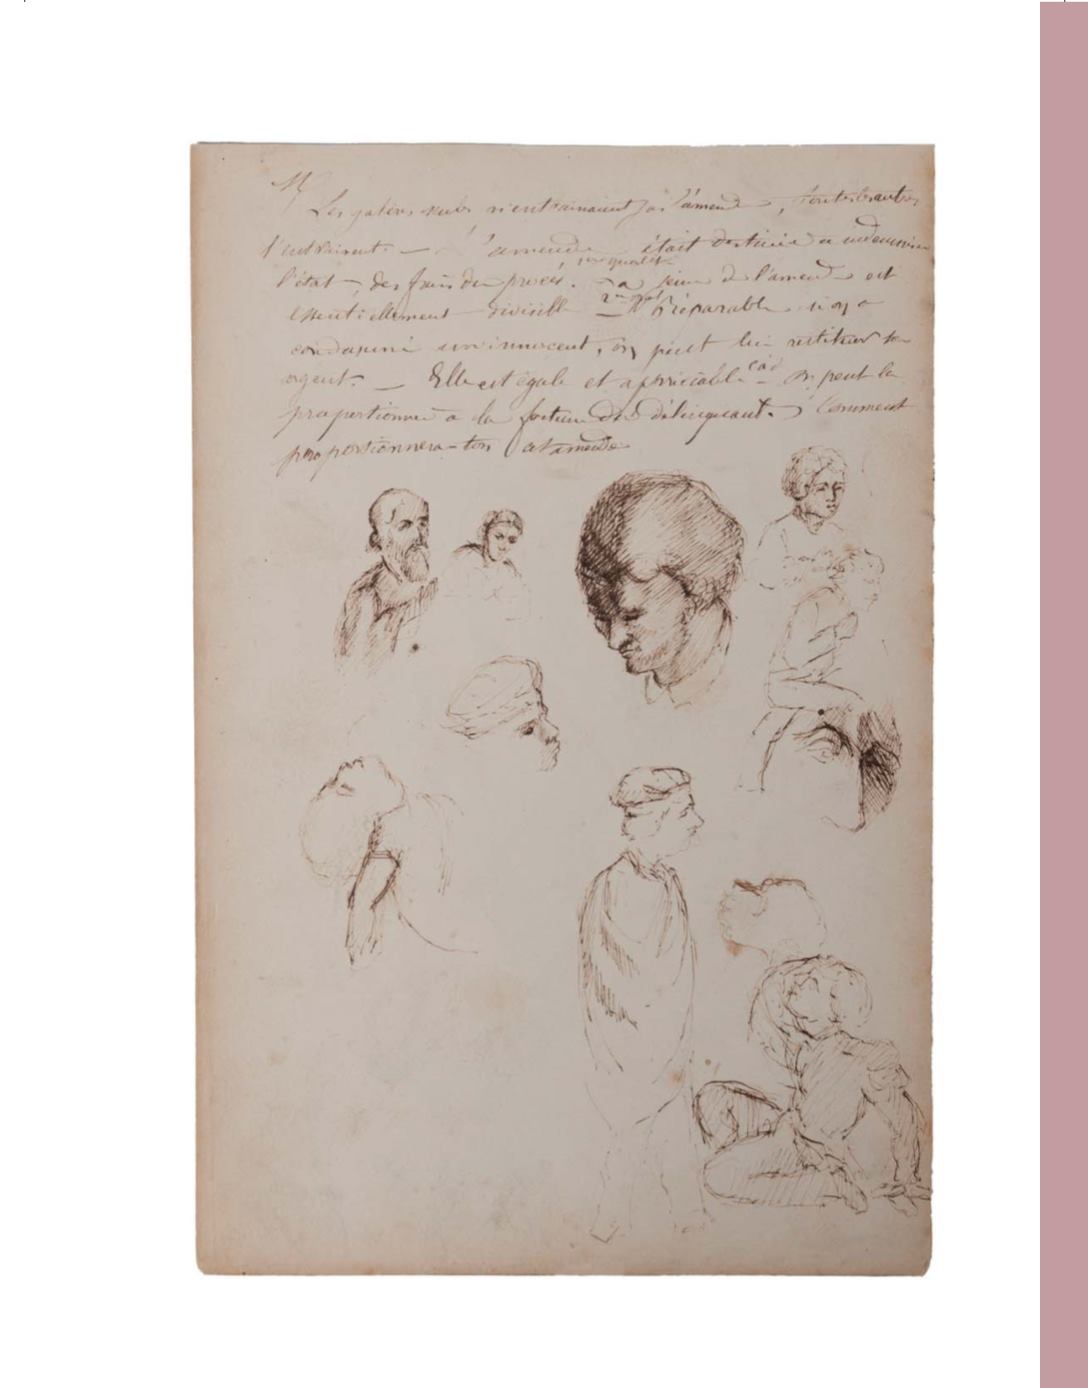 Les galères seules n'entrainaient pas l'amende, toutes les autres
l'entrainent. — L'amende était destinée a indemniser
l'état — des frais du procés. La peine de l'amende est
essentiellement divisible — Réparable si on a
condamné un innocent, on peut lui restituer son
argent. — Elle est égale et appréciable — càd on peut la
proportionner a la fortune du délinquant. Comment
proportionnera-t-on l'amende